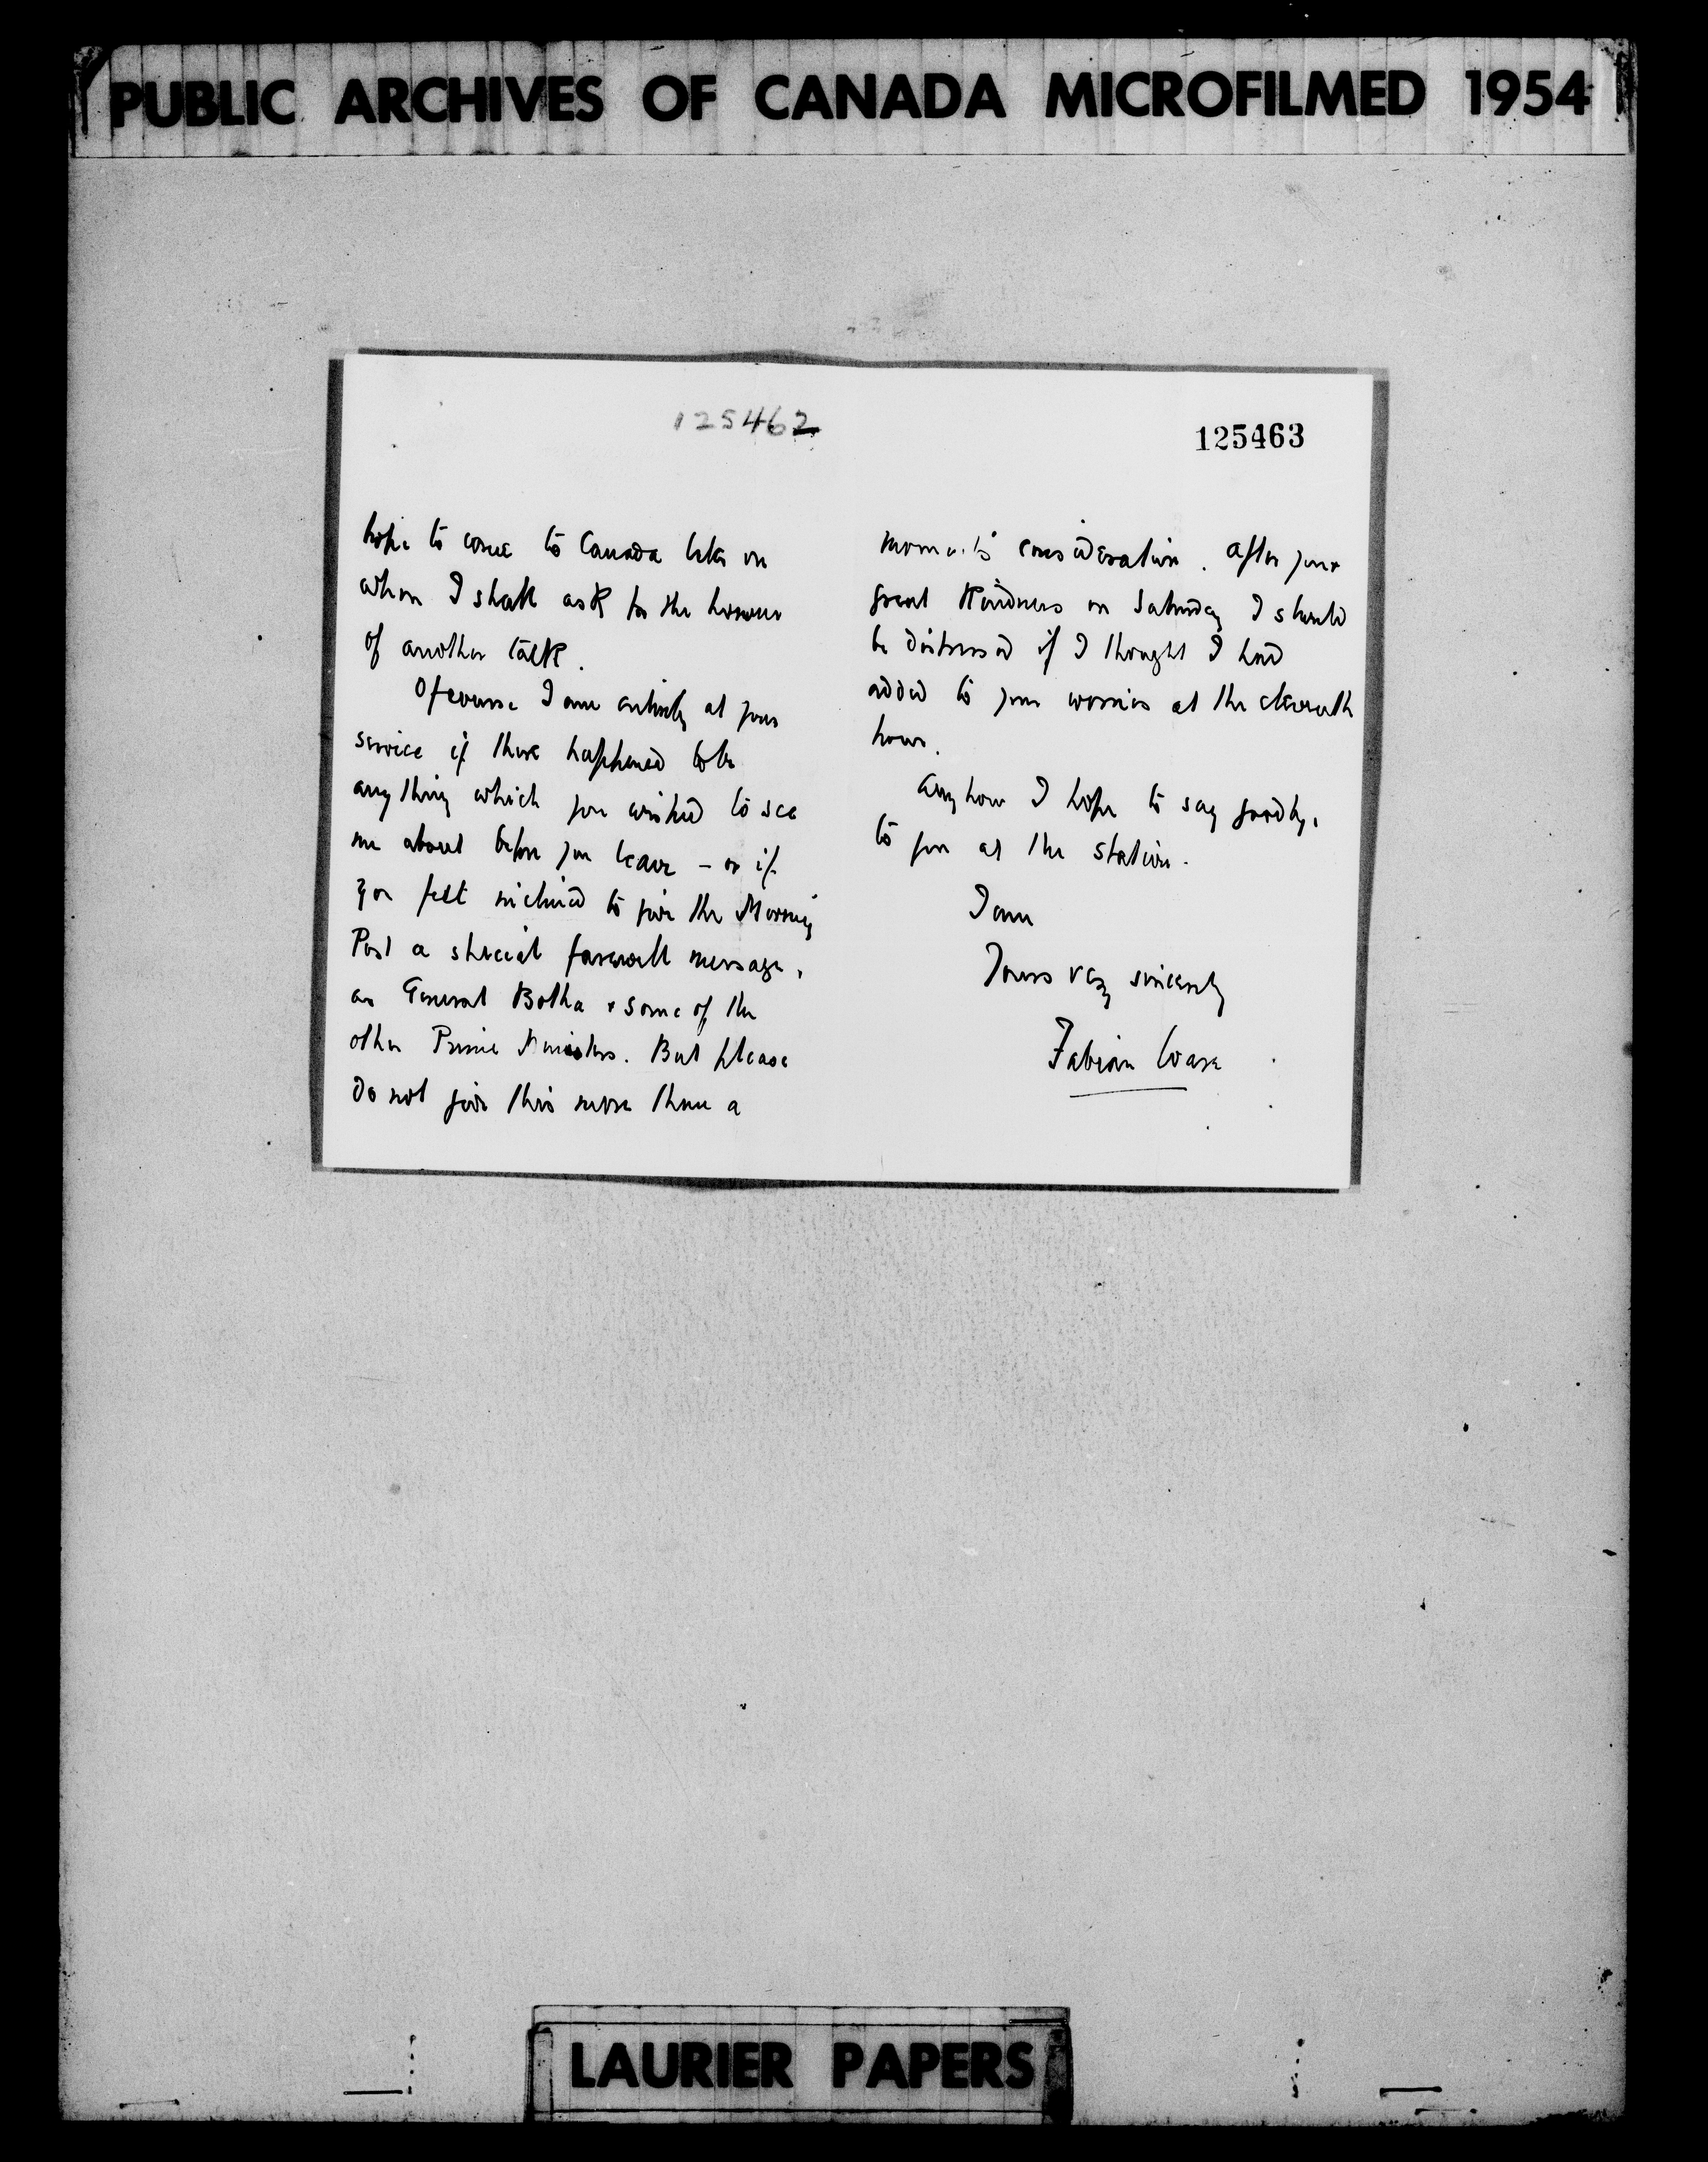 PUBLIC ARCHIVES OF CANADA MICROFILMED 1954
125462
hope to come to Canada later on
when I shall ask for the honour
of another talk.
Of course I am entirely at your
service if there happened to be
anything which you wished to see
me about before you leave - or if
you felt inclined to give the Morning
Post a special farewell message,
as General Botha & some of the
other Prime Ministers. But please
do not give this more than a
125463
moment's consideration. After your
great kindness on Saturday I should
be distressed if I thought I had
added to your worries at the eleventh
hour.
Anyhow I hope to say goodbye
to you at the station.
I am
Yours very sincerely
Fabian Ware
LAURIER PAPERS